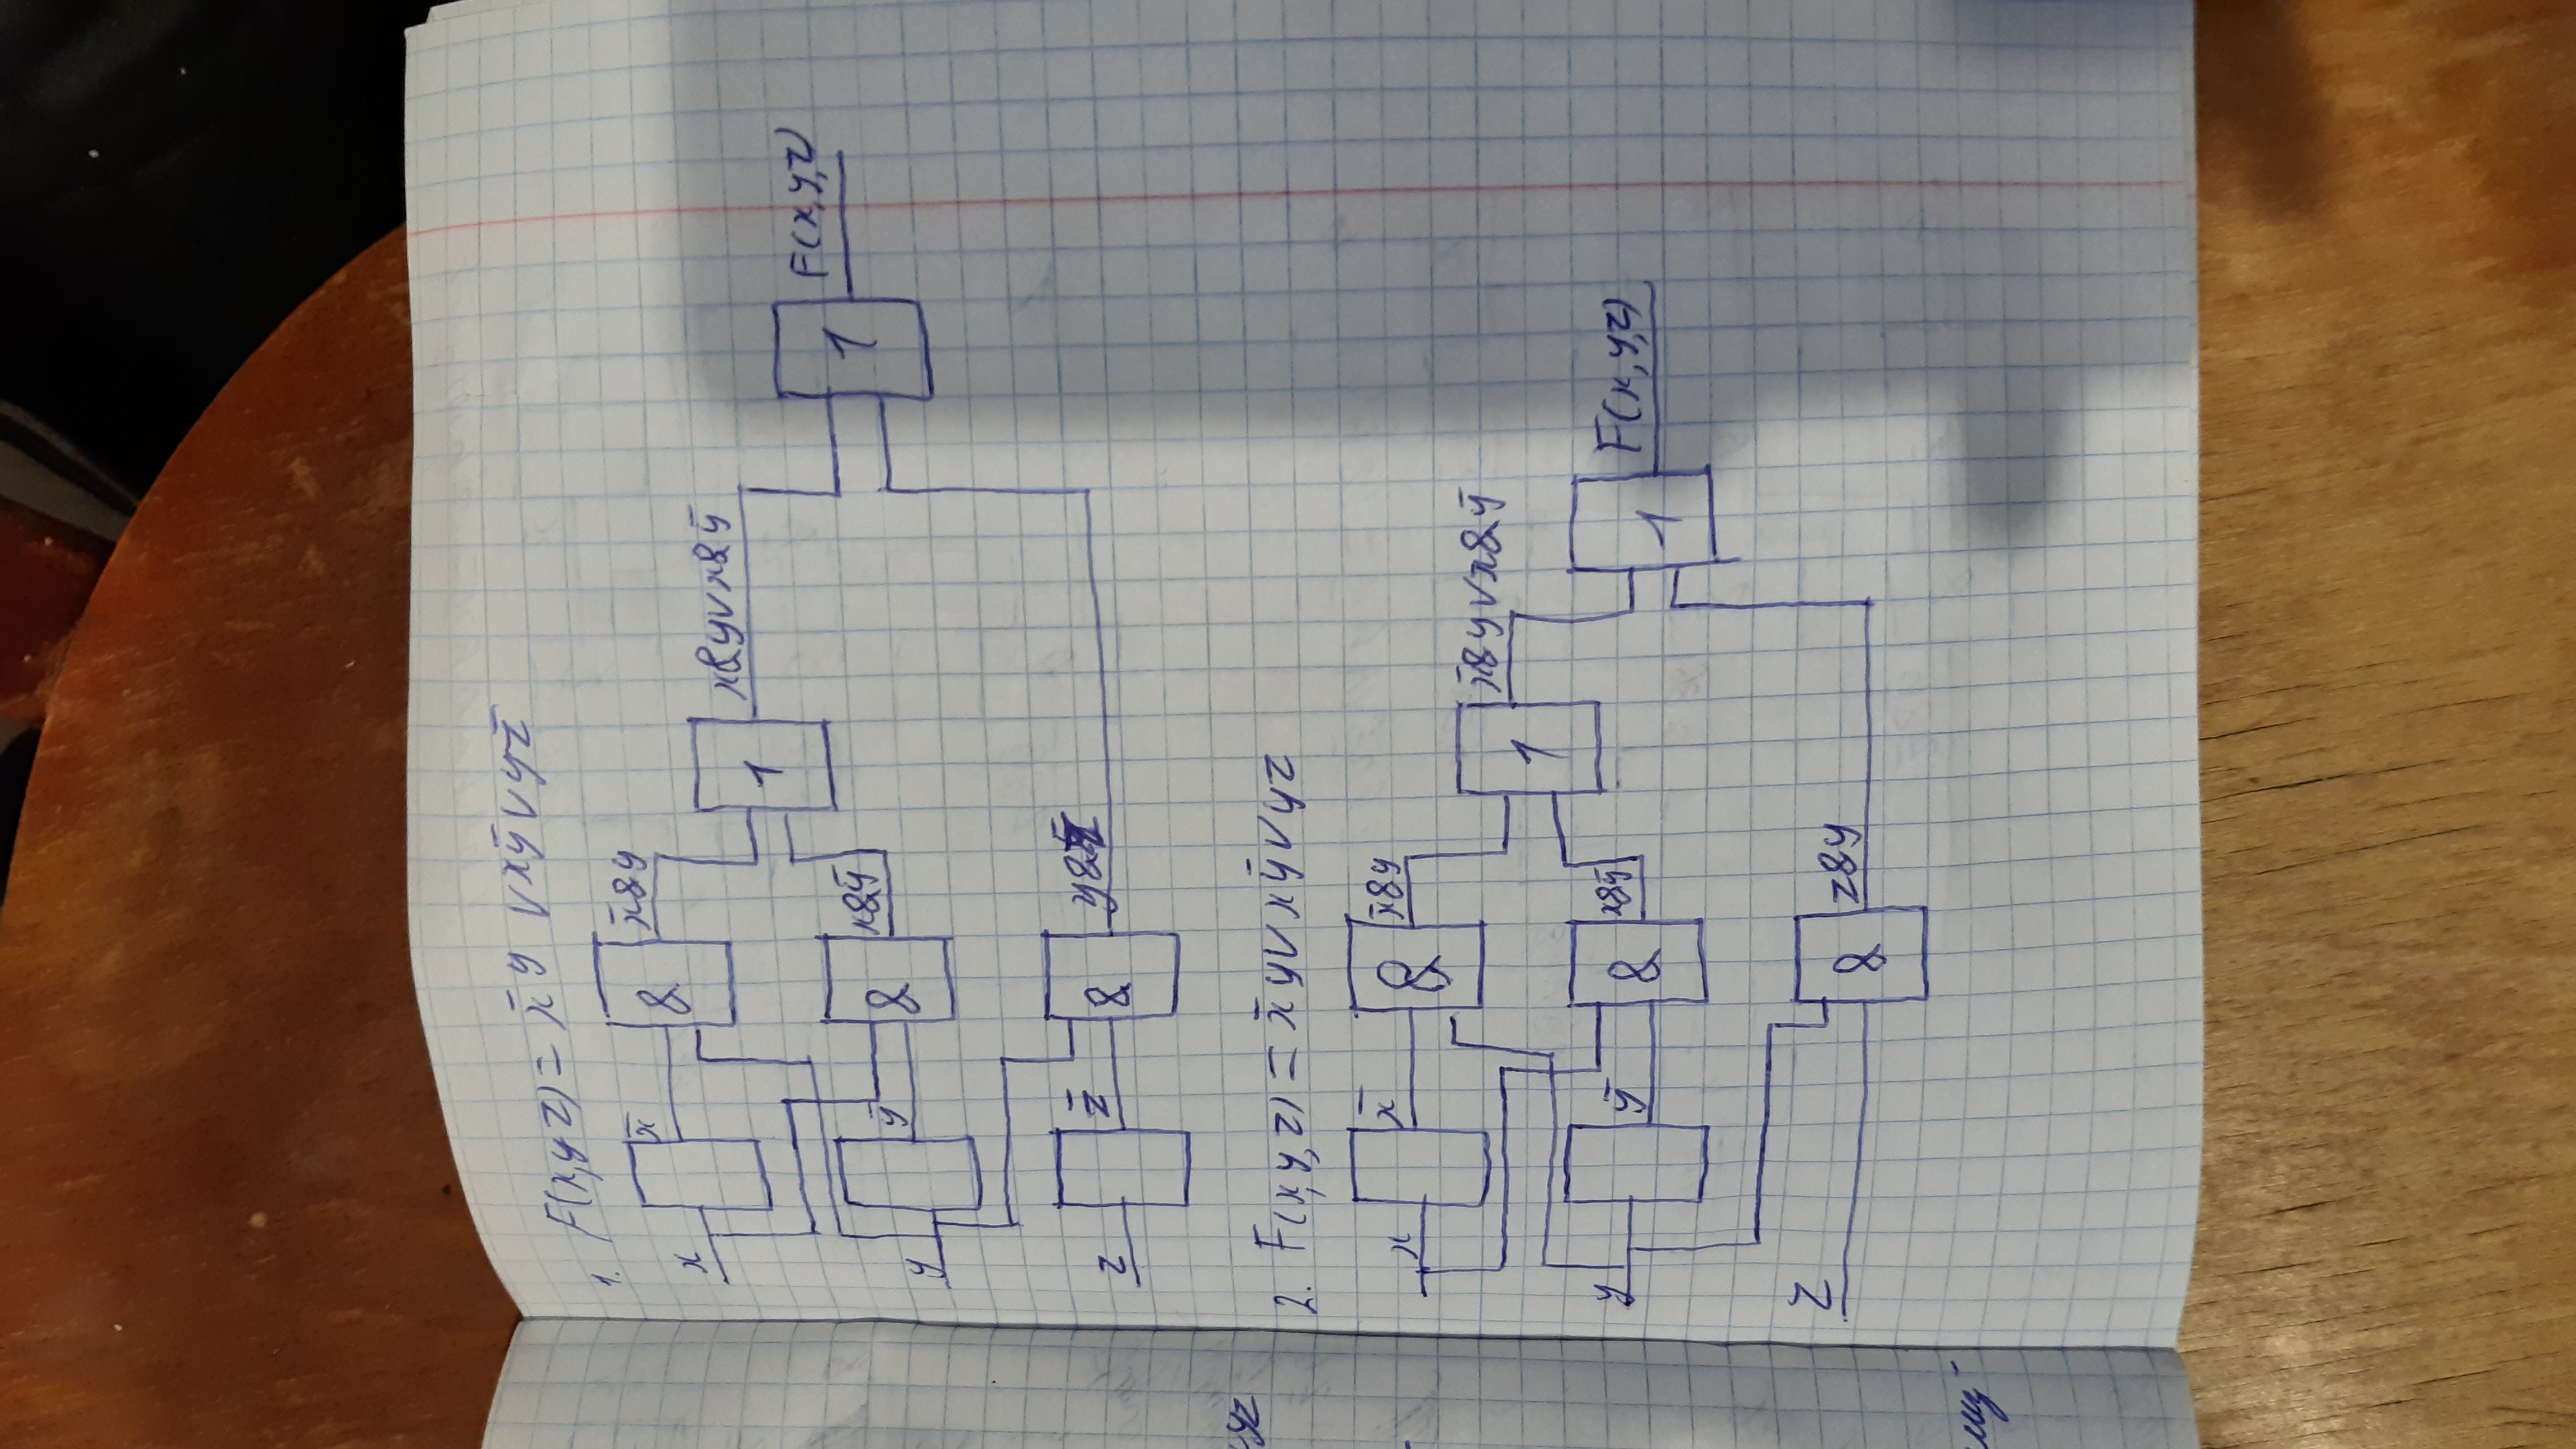 1. F(x,yz) = x̄y ∨ xȳ ∨ yz̄
x
x̄
&
x̄&y
1
x&y∨x&ȳ
1
F(x,y,z)
y
ȳ
&
x&ȳ
z
z̄
&
y&z̄
2. F(x,y,z) = x̄y∨xȳ∨yz
x
x̄
&
x̄&y
1
x̄&y∨x&ȳ
1
F(x,y,z)
y
ȳ
&
x&ȳ
z
&
z&y
yz